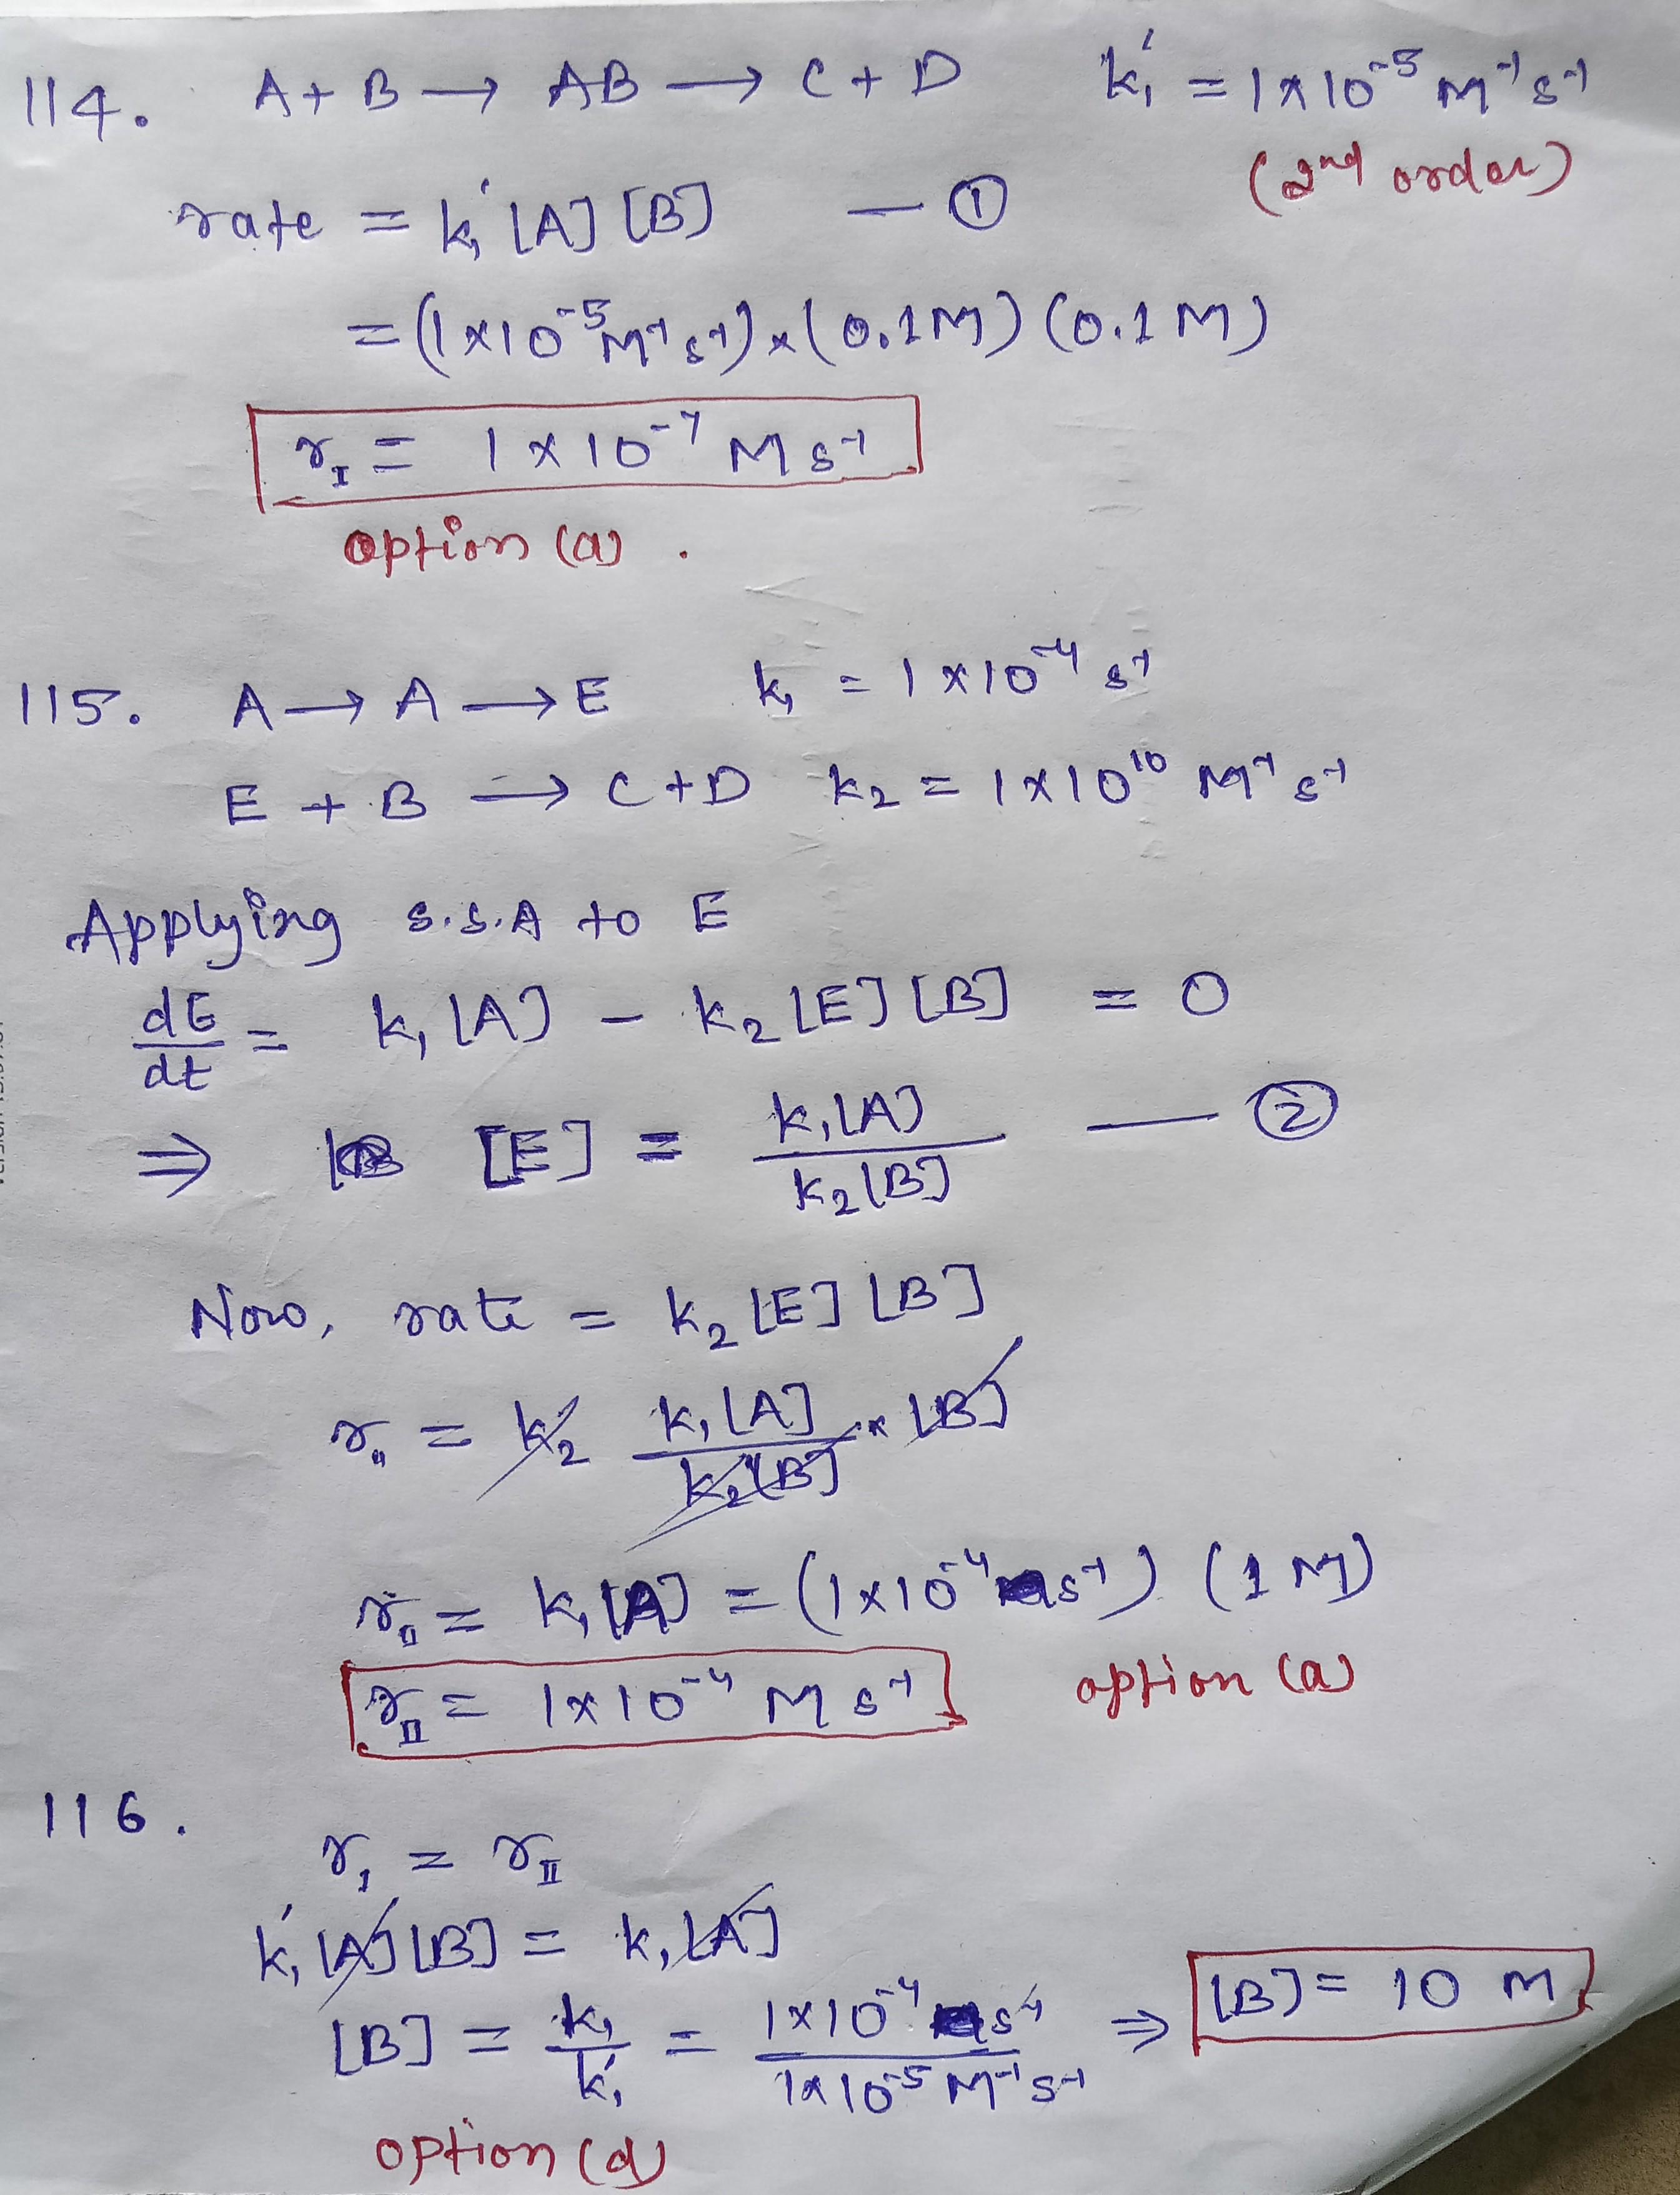 114. A + B → AB → C + D k₁' = 1 x 10⁻⁵ M⁻¹ s⁻¹
(2nd order)
rate = k₁' [A] [B] — ①
= (1 x 10⁻⁵ M⁻¹ s⁻¹) x (0.1 M) (0.1 M)
r_I = 1 x 10⁻⁷ M s⁻¹
option (a) .
115. A → A → E k₁ = 1 x 10⁻⁴ s⁻¹
E + B → C + D k₂ = 1 x 10¹⁰ M⁻¹ s⁻¹
Applying S.S.A to E
dE/dt = k₁ [A] - k₂ [E] [B] = 0
⇒ [E] = k₁[A] / k₂[B] — ②
Now, rate = k₂ [E] [B]
r_II = k₂ k₁[A] / k₂[B] x [B]
r_II = k₁ [A] = (1 x 10⁻⁴ s⁻¹) (1 M)
r_II = 1 x 10⁻⁴ M s⁻¹ option (a)
116.
r_I = r_II
k₁' [A] [B] = k₁ [A]
[B] = k₁ / k₁' = 1 x 10⁻⁴ s⁻¹ / 1 x 10⁻⁵ M⁻¹ s⁻¹ ⇒ [B] = 10 M
option (d)